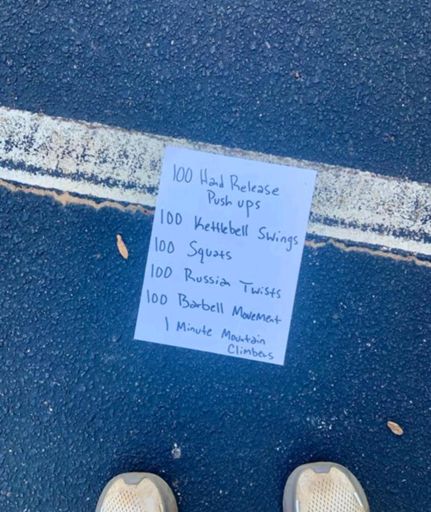 100 Hand Release
Push ups
100 Kettlebell Swings
100 Squats
100 Russian Twists
100 Barbell Movement
1 Minute Mountain
Climbers